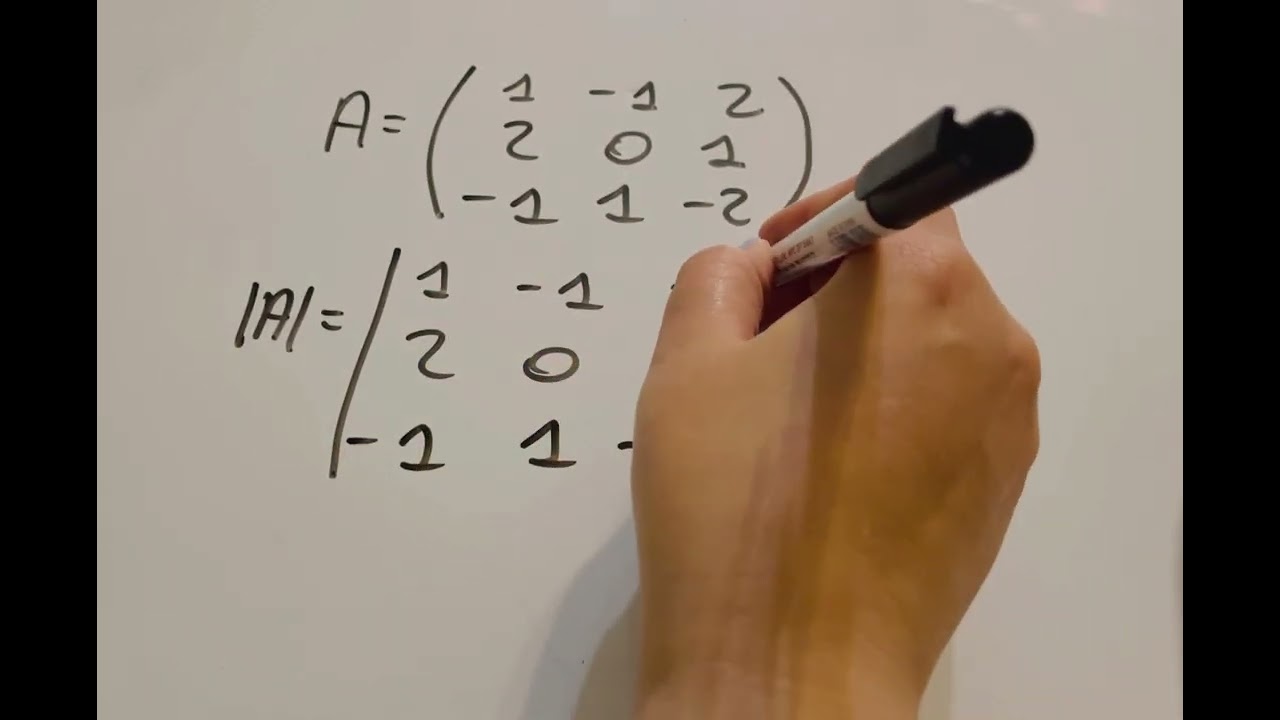 A = ( 1 -1 2 )
2 0 1
-1 1 -2
|A| = | 1 -1
2 0
-1 1 -